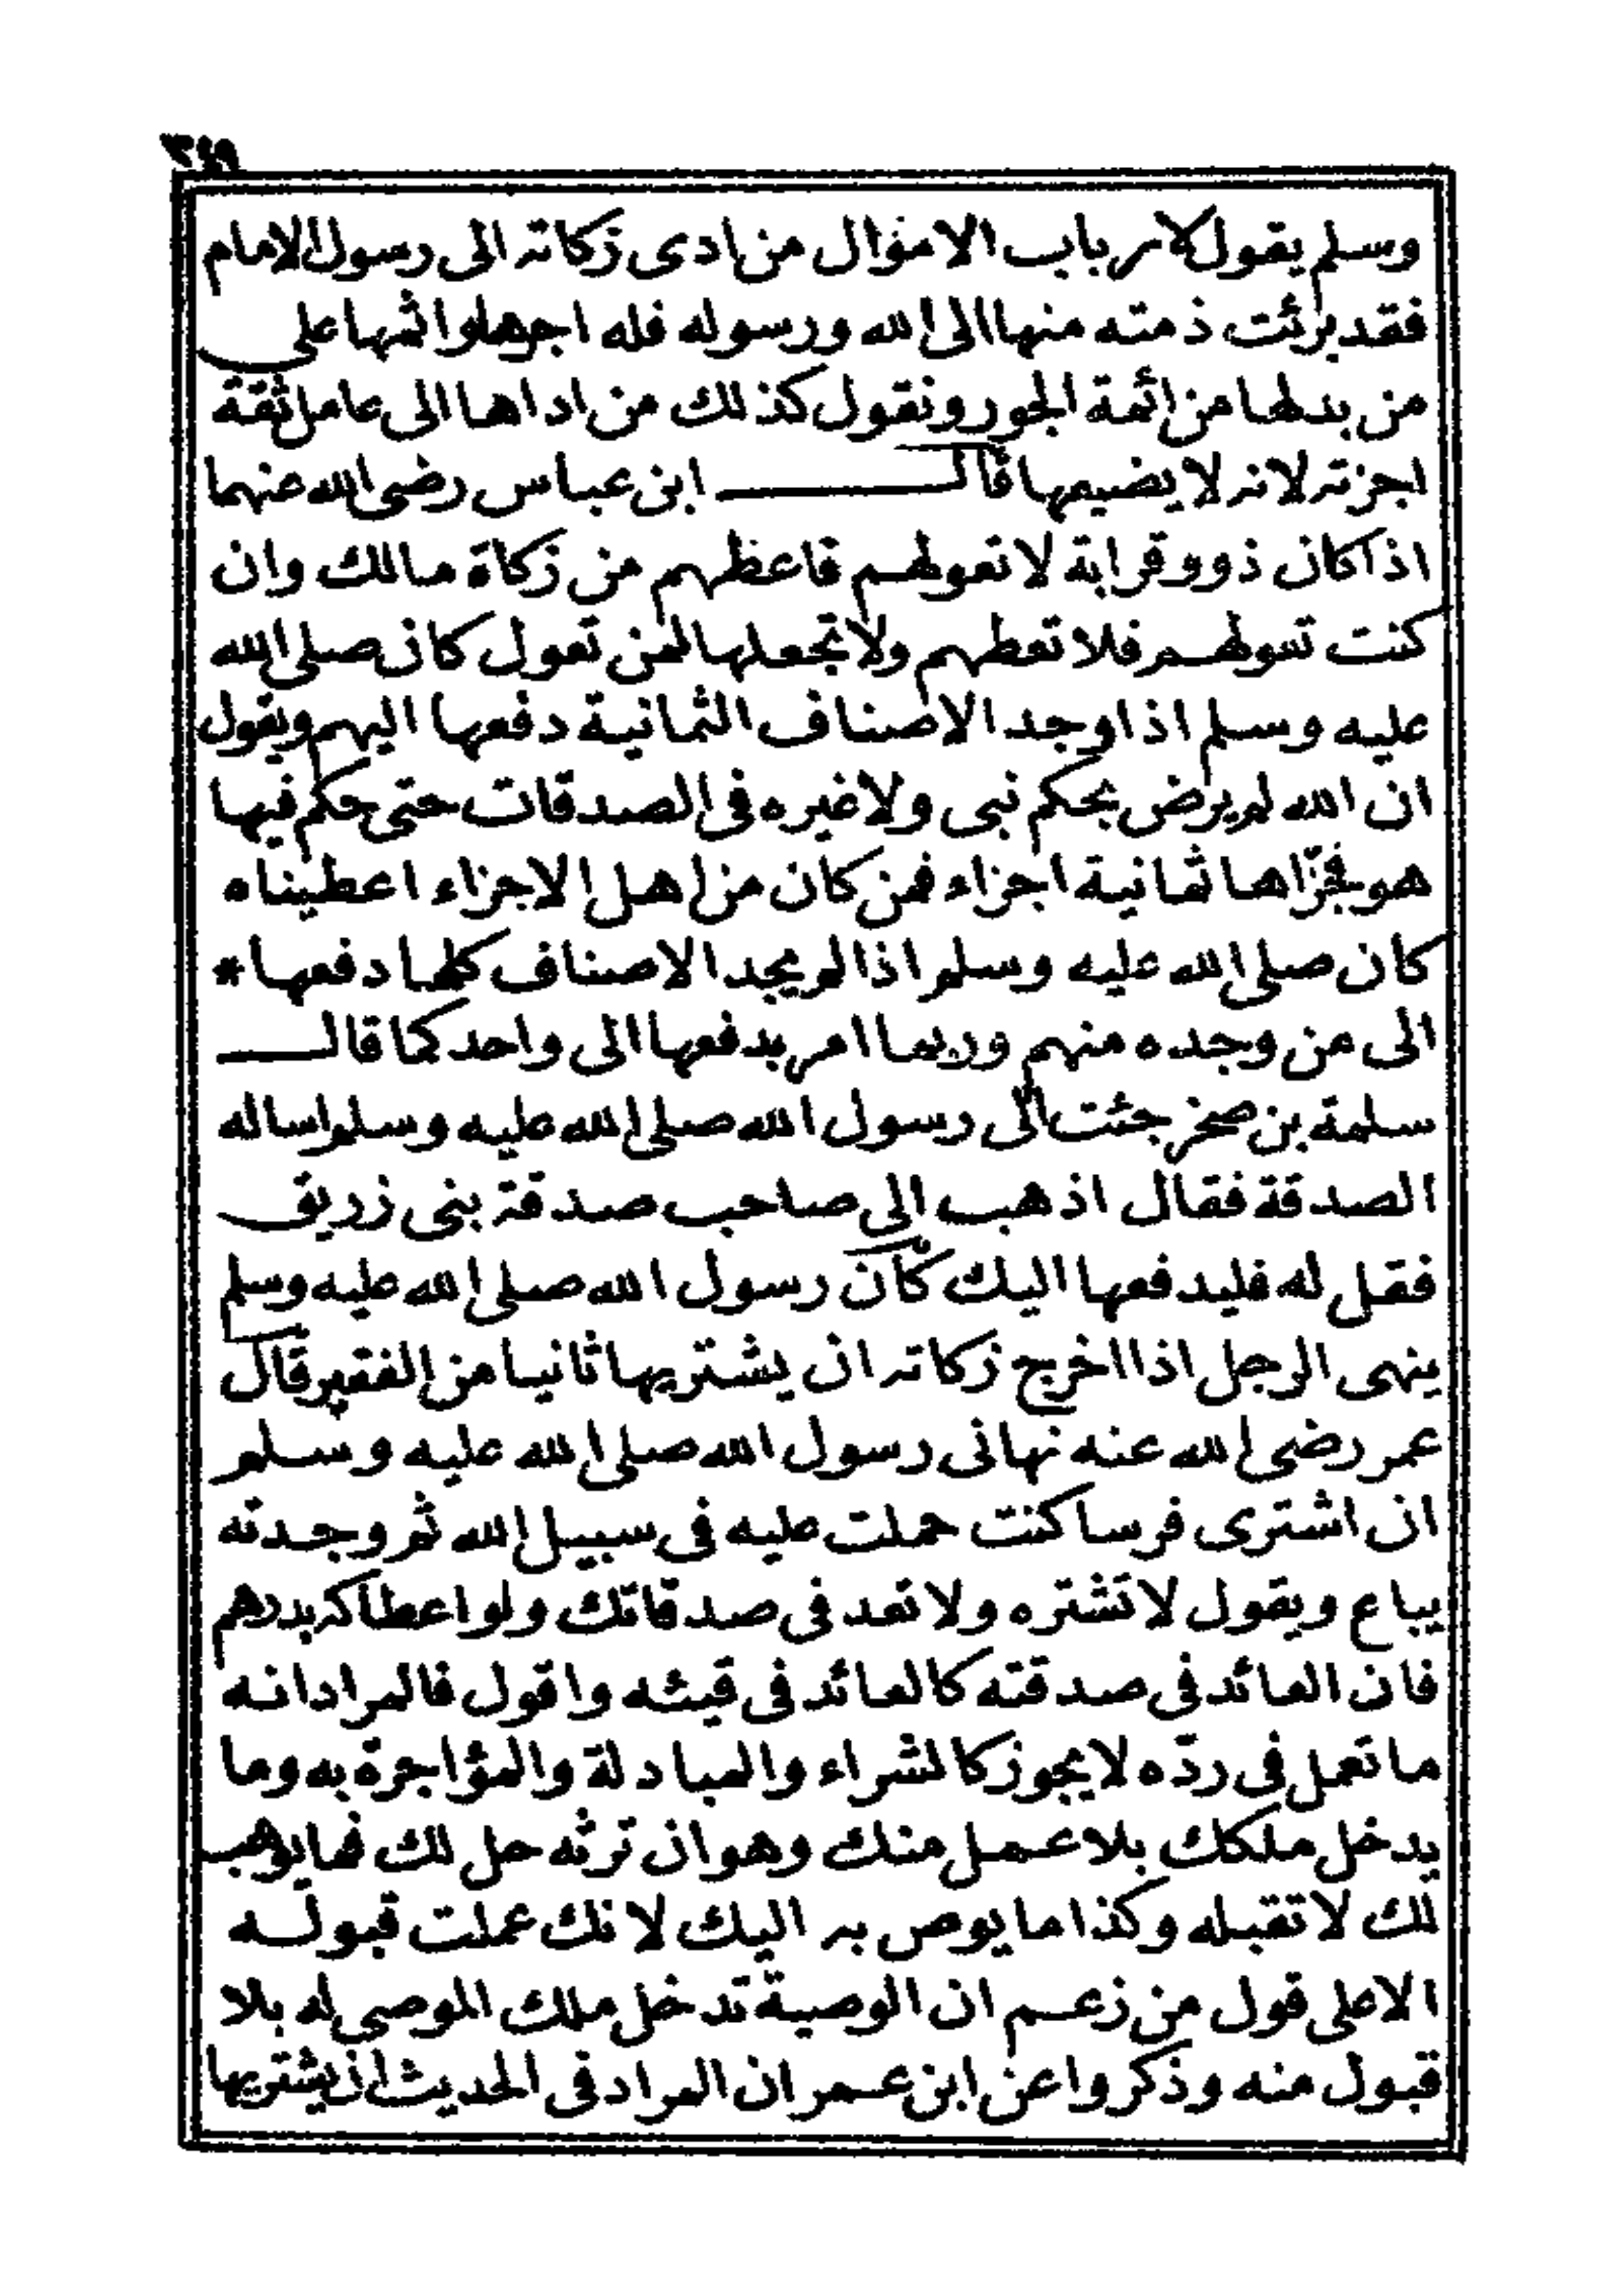 ٣٤٩
وسلم يقول لارباب الاموال من ادى زكاته الى رسول الامام
فقد برئت ذمته منها الى الله ورسوله فله اجرها واثمها على
من بدلها من ائمة الجور ونقول كذلك من اداها الى عامل ثقة
اجزته لانه لا يضيعها قالــــــ ابن عباس رضى الله عنهما
اذا كان ذوو قرابة لا تعولهم فاعطهم من زكاة مالك وان
كنت تعولهم فلا تعطهم ولا تجعلها لمن تعول كان صلى الله
عليه وسلم اذا وجد الاصناف الثمانية دفعها اليهم ويقول
ان الله لم يرض بحكم نبى ولا غيره فى الصدقات حتى حكم فيها
هو فجزّاها ثمانية اجزاء فمن كان من اهل الاجزاء اعطيناه
كان صلى الله عليه وسلم اذا لم يجد الاصناف كلها دفعها *
الى من وجده منهم وربما امر بدفعها الى واحد كما قالــــ
سلمة بن صخر جئت الى رسول الله صلى الله عليه وسلم اساله
الصدقة فقال اذهب الى صاحب صدقة بنى زريق
فقل له فليدفعها اليك كان رسول الله صلى الله عليه وسلم
ينهى الرجل اذا اخرج زكاته ان يشتريها ثانيا من الفقير قال
عمر رضى الله عنه نهانى رسول الله صلى الله عليه وسلم
ان اشترى فرسا كنت حملت عليه فى سبيل الله ثم وجدته
يباع ويقول لا تشتره ولا تعد فى صدقاتك ولو اعطاكه بدرهم
فان العائد فى صدقته كالعائد فى قيئه واقول فالمراد انه
ما تعمل فى ردّه لا يجوز كالشراء والمبادلة والمؤاجرة به وما
يدخل ملكك بلا عمل منك وهو ان ترثه حل لك فما يوهب
لك لا تقبله وكذا ما يوص به اليك لانك عملت قبولـه
الا على قول من زعم ان الوصية تدخل ملك الموصى له بلا
قبول منه وذكروا عن ابن عمر ان المراد فى الحديث ان يشتريها